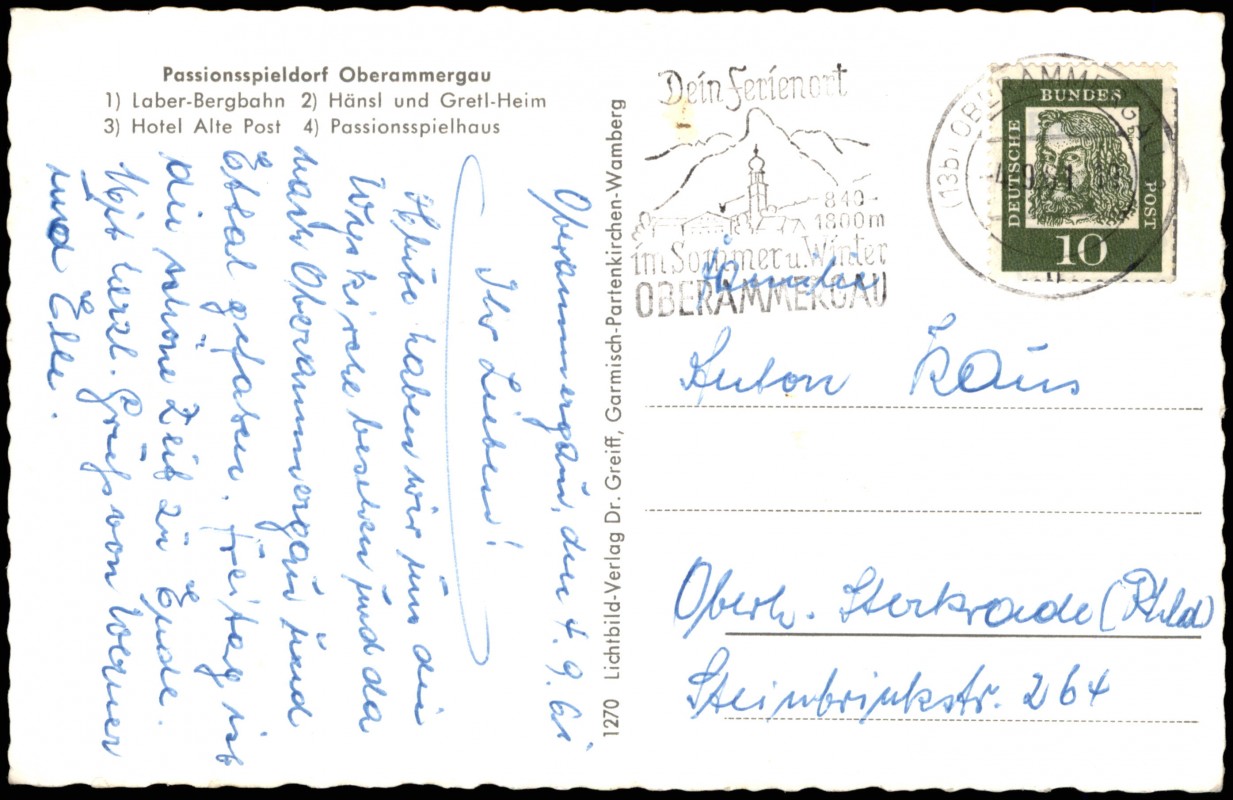 Passionsspieldorf Oberammergau
1) Laber-Bergbahn 2) Hänsl und Gretl-Heim
3) Hotel Alte Post 4) Passionsspielhaus
Oberammergau, den 4.9.61
Ihr Lieben!
Heute haben wir uns die
Wieskirche besehen und da
nach Oberammergau und
Ettal gefahren. Freitag ist
die schöne Zeit zu Ende.
Mit herzl. Grüß von Werner
und Elle.
1270 Lichtbild-Verlag Dr. Greiff, Garmisch-Partenkirchen-Wamberg
Dein Ferienort
840-
1800m
im Sommer u. Winter
OBERAMMERGAU
(13b) OBERAMMERGAU
-4.9.61
DEUTSCHE
BUNDES
POST
10
Familie
Anton Kaus
Oberh. Sterkrade (Rhld)
Steinbrinkstr. 264